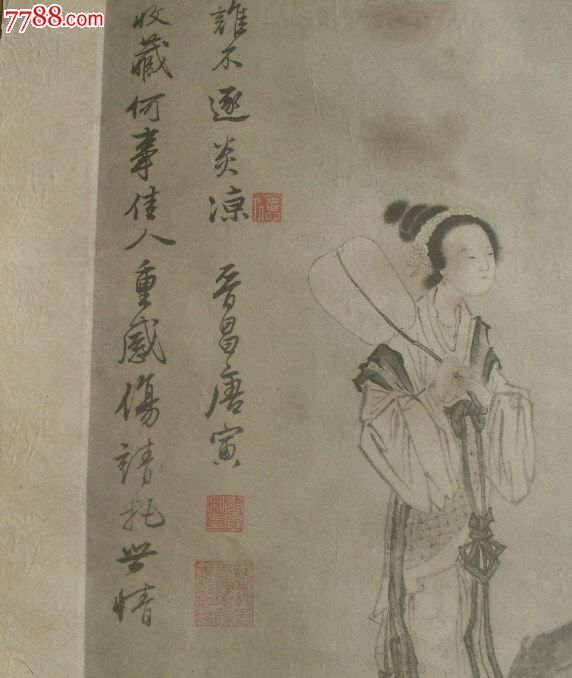 7788.com
收藏何事佳人重感傷請托世情
誰不逐炎凉 晉昌唐寅